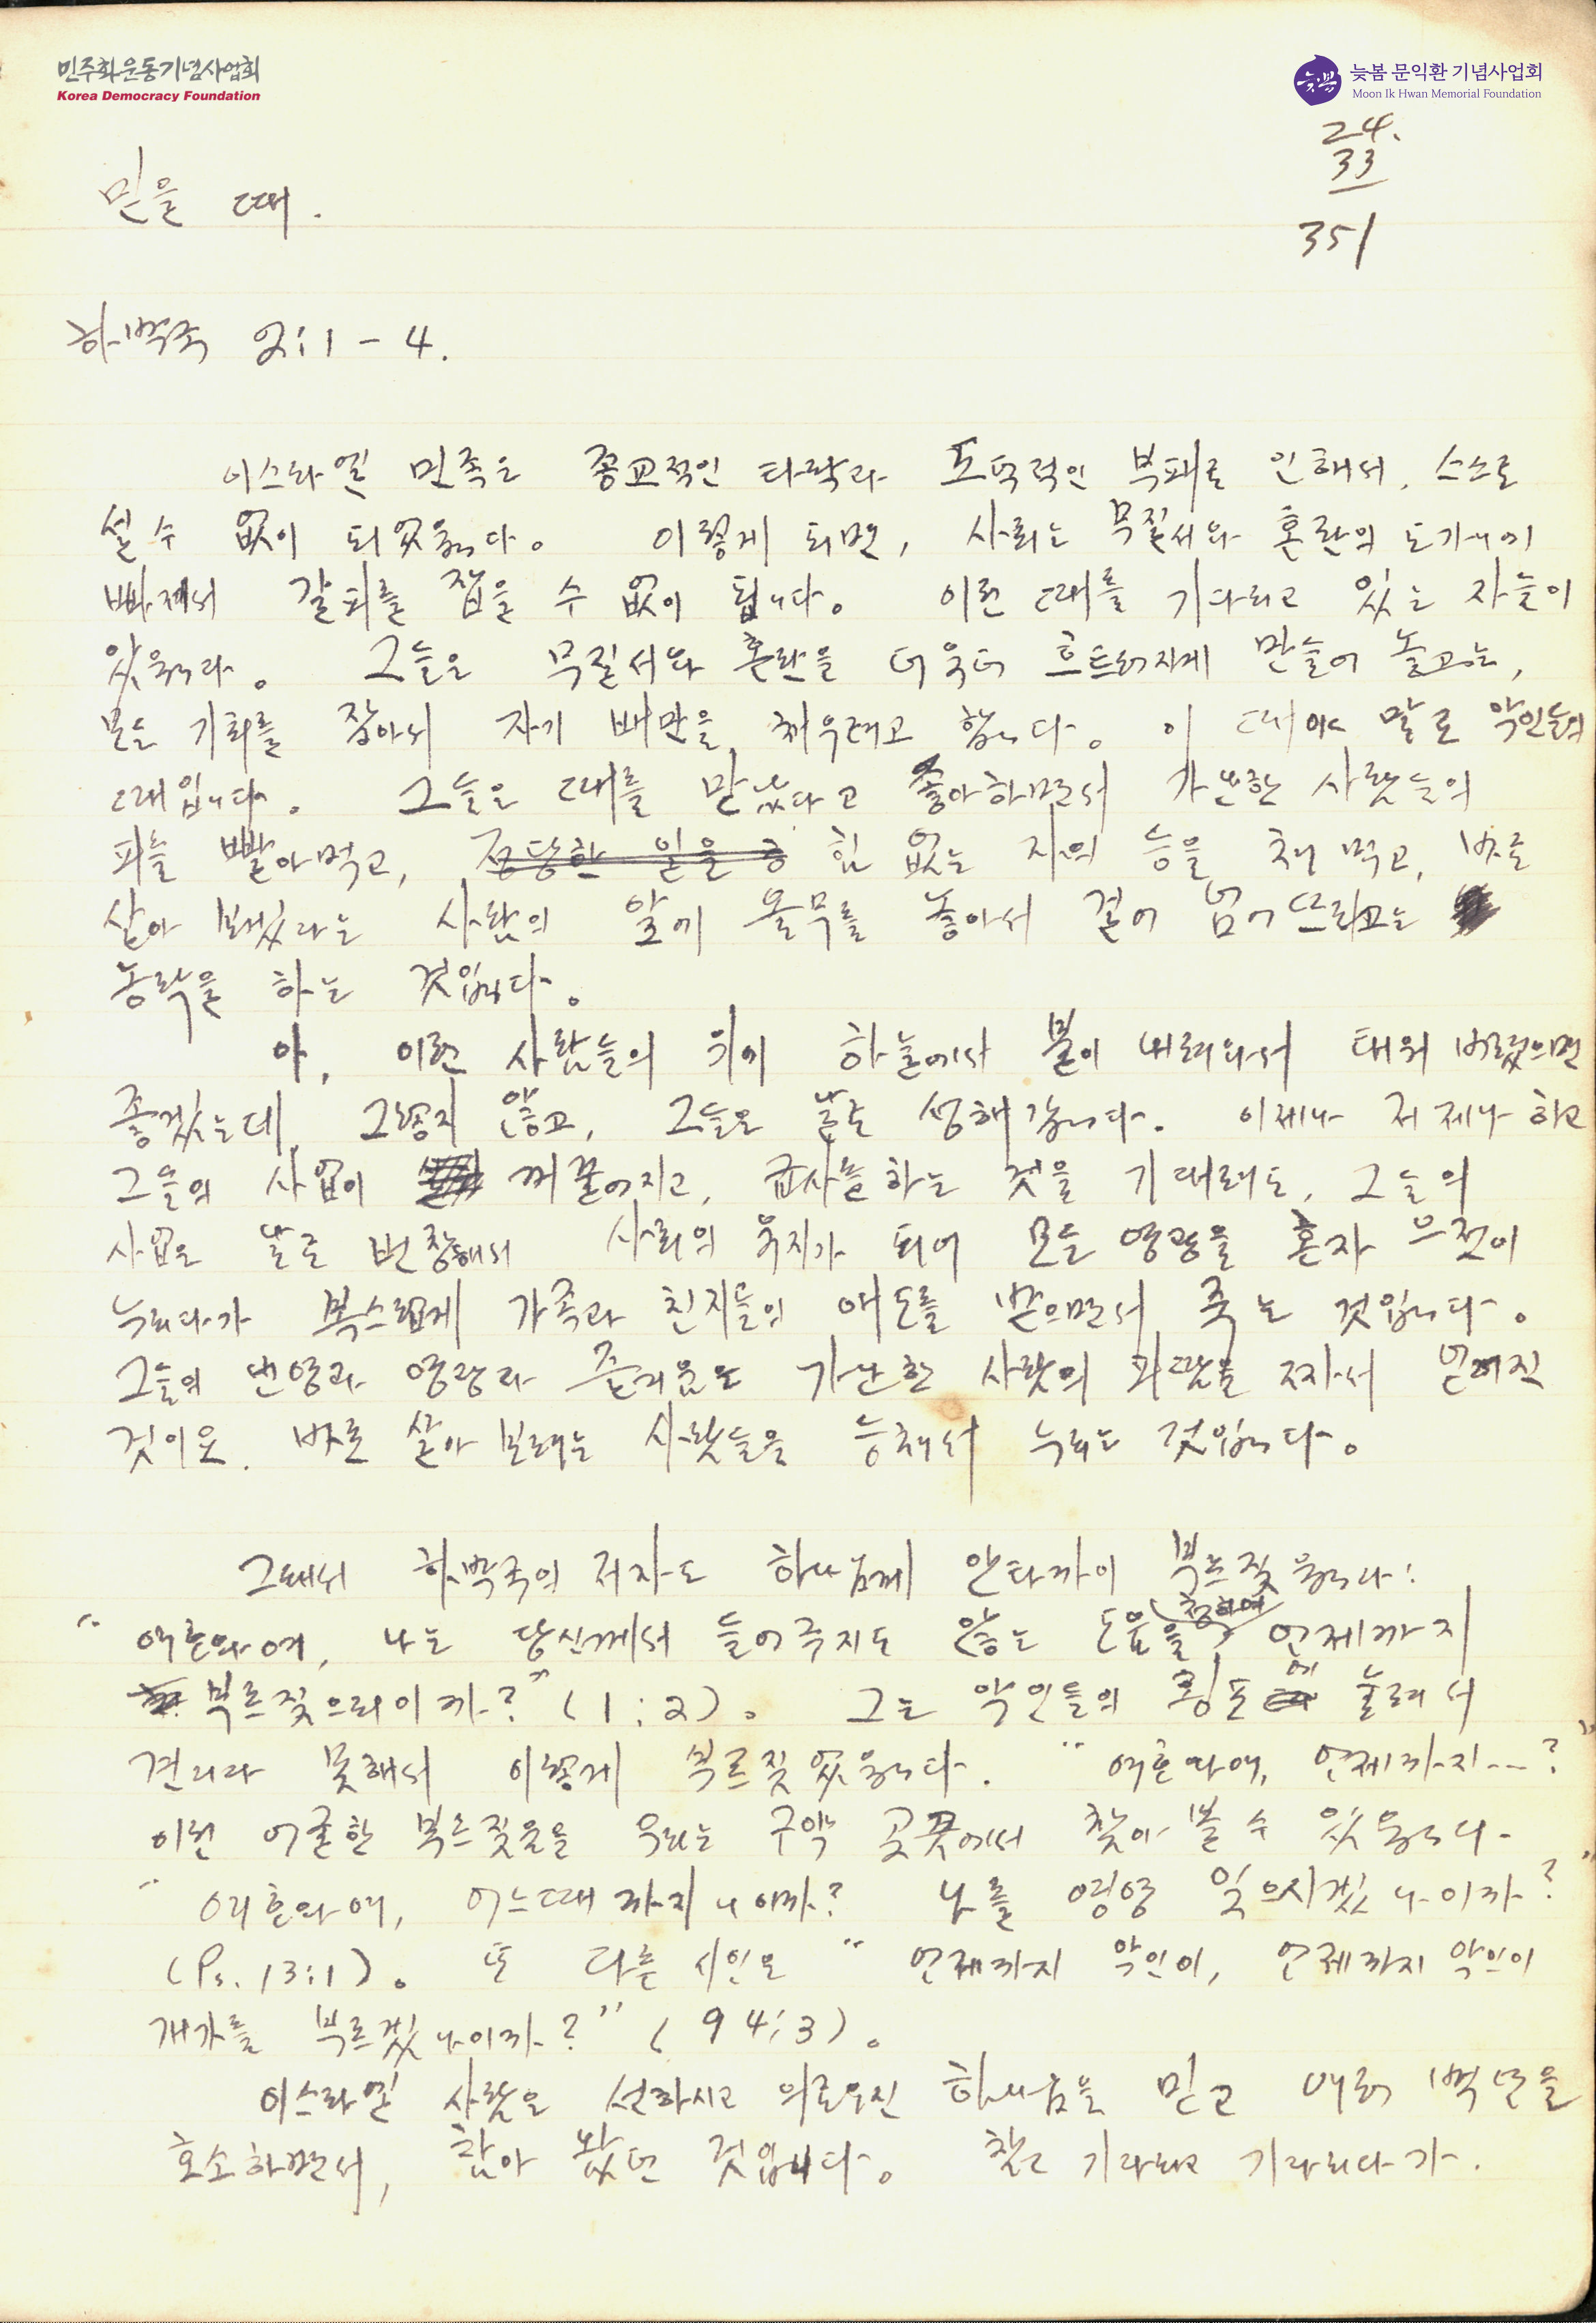 민주화운동기념사업회
Korea Democracy Foundation
늦봄
늦봄 문익환 기념사업회
Moon Ik Hwan Memorial Foundation
24.
33
351
믿을 때.
하박국 2:1-4.
이스라엘 민족은 종교적인 타락과 도덕적인 부패로 인해서, 스스로
설 수 없이 되었읍니다. 이렇게 되면, 사회는 무질서와 혼란의 도가니에
빠져서 갈피를 잡을 수 없이 됩니다. 이런 때를 기다리고 있는 자들이
있읍니다. 그들은 무질서와 혼란을 더욱더 흐트러지게 만들어 놓고는,
모든 기회를 잡아서 자기 배만을 채우려고 합니다. 이 때야 말로 악인들의
때입니다. 그들은 때를 만났다고 좋아하면서 가난한 사람들의
피를 빨아먹고, 정당한 일을 힘 없는 자의 등을 쳐 먹고, 바로
살아 보겠다는 사람의 앞에 올무를 놓아서 걸어 넘어뜨리고는
농락을 하는 것입니다.
아, 이런 사람들의 위에 하늘에서 불이 내려와서 태워 버렸으면
좋겠는데, 그렇지 않고, 그들은 날로 성해 갑니다. 이제나 저제나 하고
그들의 사업이 꺼꿀어지고, 급사를 하는 것을 기대려도, 그들의
사업은 날로 번창해서 사회의 유지가 되어 모든 영광을 혼자 으젓이
누리다가 복스럽게 가족과 친지들의 애도를 받으면서 죽는 것입니다.
그들의 번영과 영광과 즐거움은 가난한 사람의 피땀을 짜서 얻어진
것이요, 바로 살아 보려는 사람들을 등쳐서 누리는 것입니다.
그래서 하박국의 저자도 하나님께 안타까이 부르짖읍니다:
“여호와여, 나는 당신께서 들어주지도 않는 도움을 청하여 언제까지
부르짖으리이까?” (1:2). 그는 악인들의 횡포에 눌려서
견디다 못해서 이렇게 부르짖었읍니다. “여호와여, 언제까지---?”
이런 억울한 부르짖음을 우리는 구약 곳곳에서 찾아 볼 수 있읍니다.
“여호와여, 어느때 까지니이까? 나를 영영 잊으시겠나이까?”
(Ps. 13:1). 또 다른 시인은 “언제까지 악인이, 언제까지 악인이
개가를 부르겠나이까?” (94:3).
이스라엘 사람은 선하시고 의로우신 하나님을 믿고 여러 백년을
호소하면서, 참아 왔던 것입니다. 참고 기다리고 기다리다가.